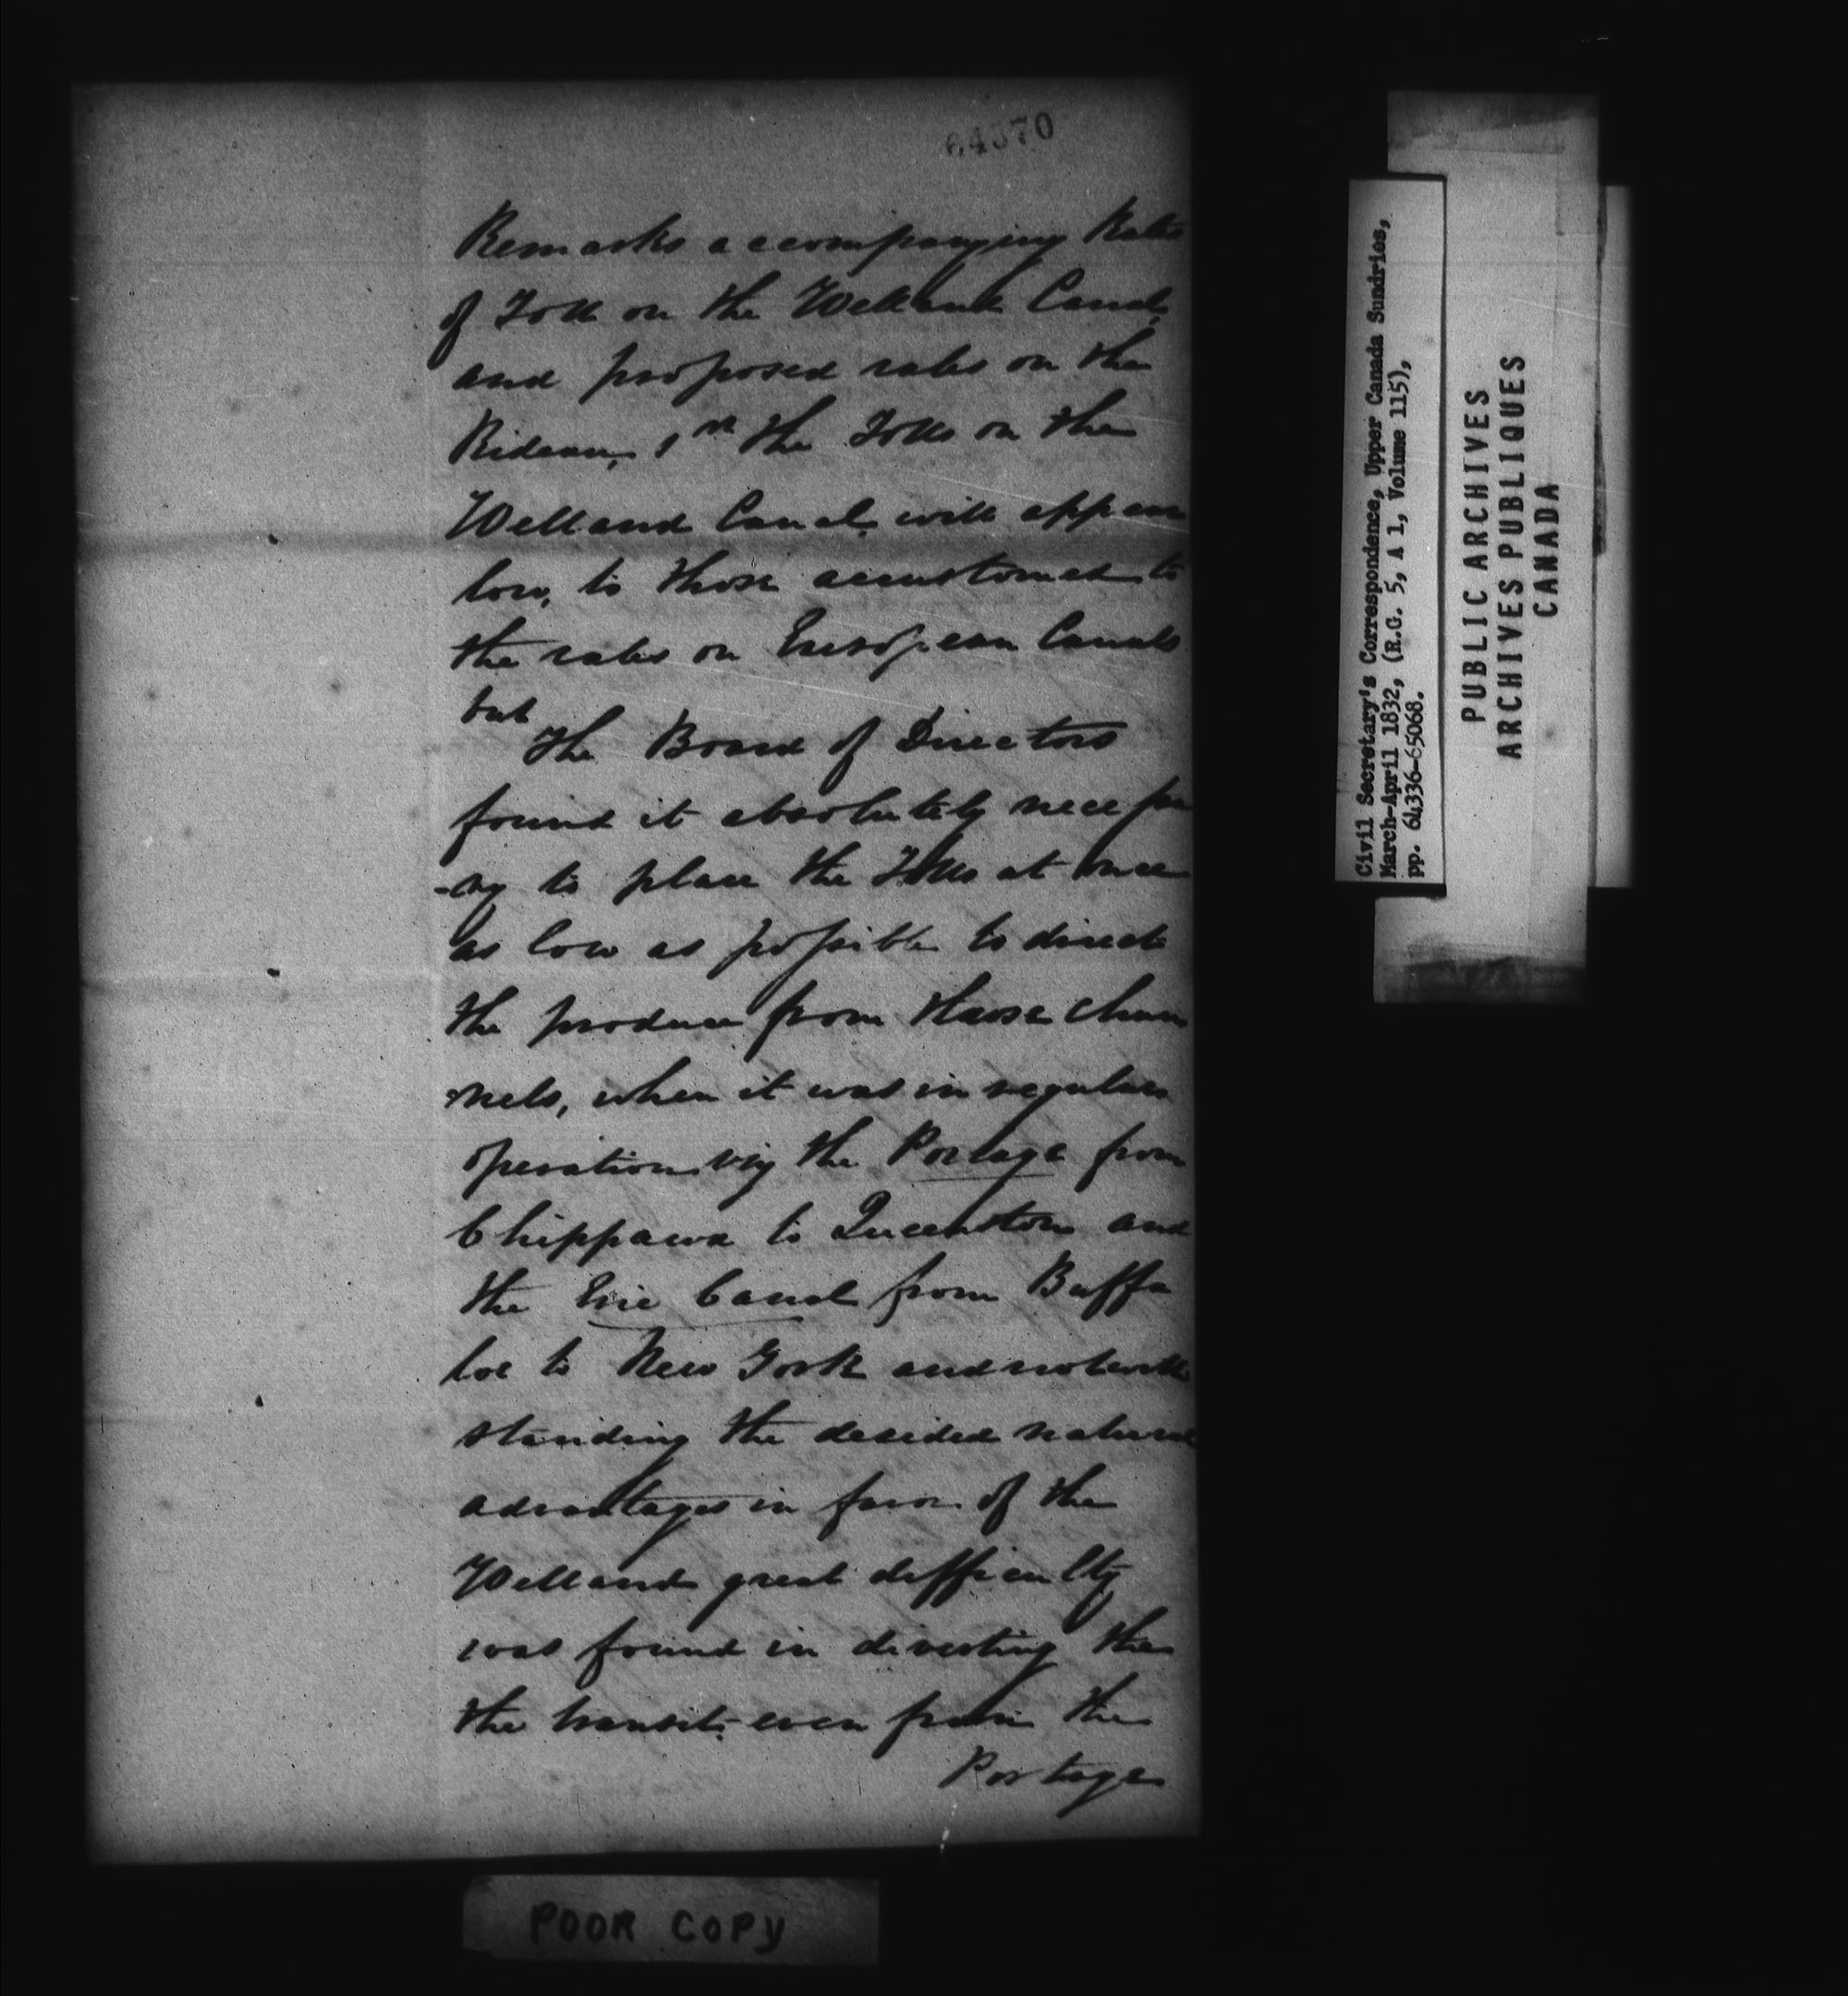 64570
Remarks accompanying Rates
of Toll on the Welland Canal,
and proposed rates on the
Rideau, 1st the Tolls on the
Welland Canal, will appear
low, to those accustomed to
the rates on European Canals
but
The Board of Directors
found it absolutely necessa
-ry to place the Tolls at once
as low as possible to direct
the produce from those chan
nels, when it was in regular
operation viz the Portage from
Chippawa to Queenston and
the Erie Canal from Buffa
loe to New York and notwith
standing the desided natural
advantages in favor of the
Welland great difficulty
was found in diverting the
the transit, even from the
Portage
POOR COPY
Civil Secretary's Correspondence, Upper Canada Sundries,
March-April 1832, (R.G. 5, A 1, Volume 115),
pp. 64336-65068.
PUBLIC ARCHIVES
ARCHIVES PUBLIQUES
CANADA